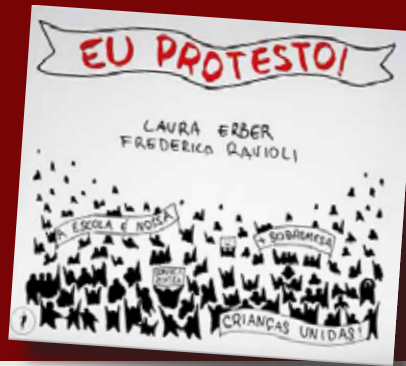 EU PROTESTO!
LAURA ERBER
FREDERICO RAVIOLI
A ESCOLA É NOSSA
+ SOBREMESA
CRIANÇAS UNIDAS!